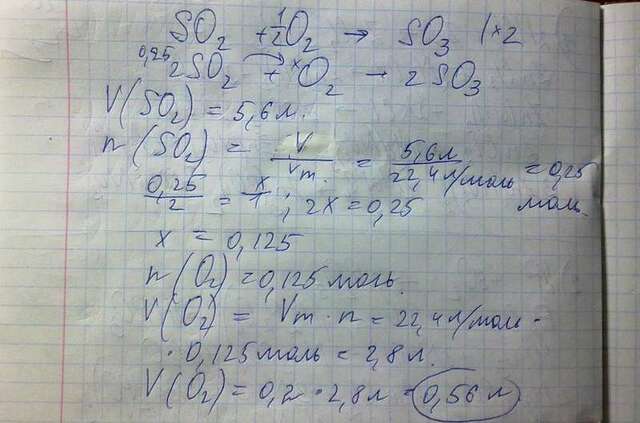 SO₂ + 1/2 O₂ → SO₃ | ×2
0,25 2SO₂ + x O₂ → 2SO₃
V(SO₂) = 5,6 л.
n(SO₂) = V/Vm. = 5,6 л/22,4 л/моль = 0,25 моль.
0,25/2 = x/1 ; 2x = 0,25
x = 0,125
n(O₂) = 0,125 моль.
V(O₂) = Vm · n = 22,4 л/моль ·
· 0,125 моль = 2,8 л.
V(O₂) = 0,2 · 2,8 л = 0,56 л